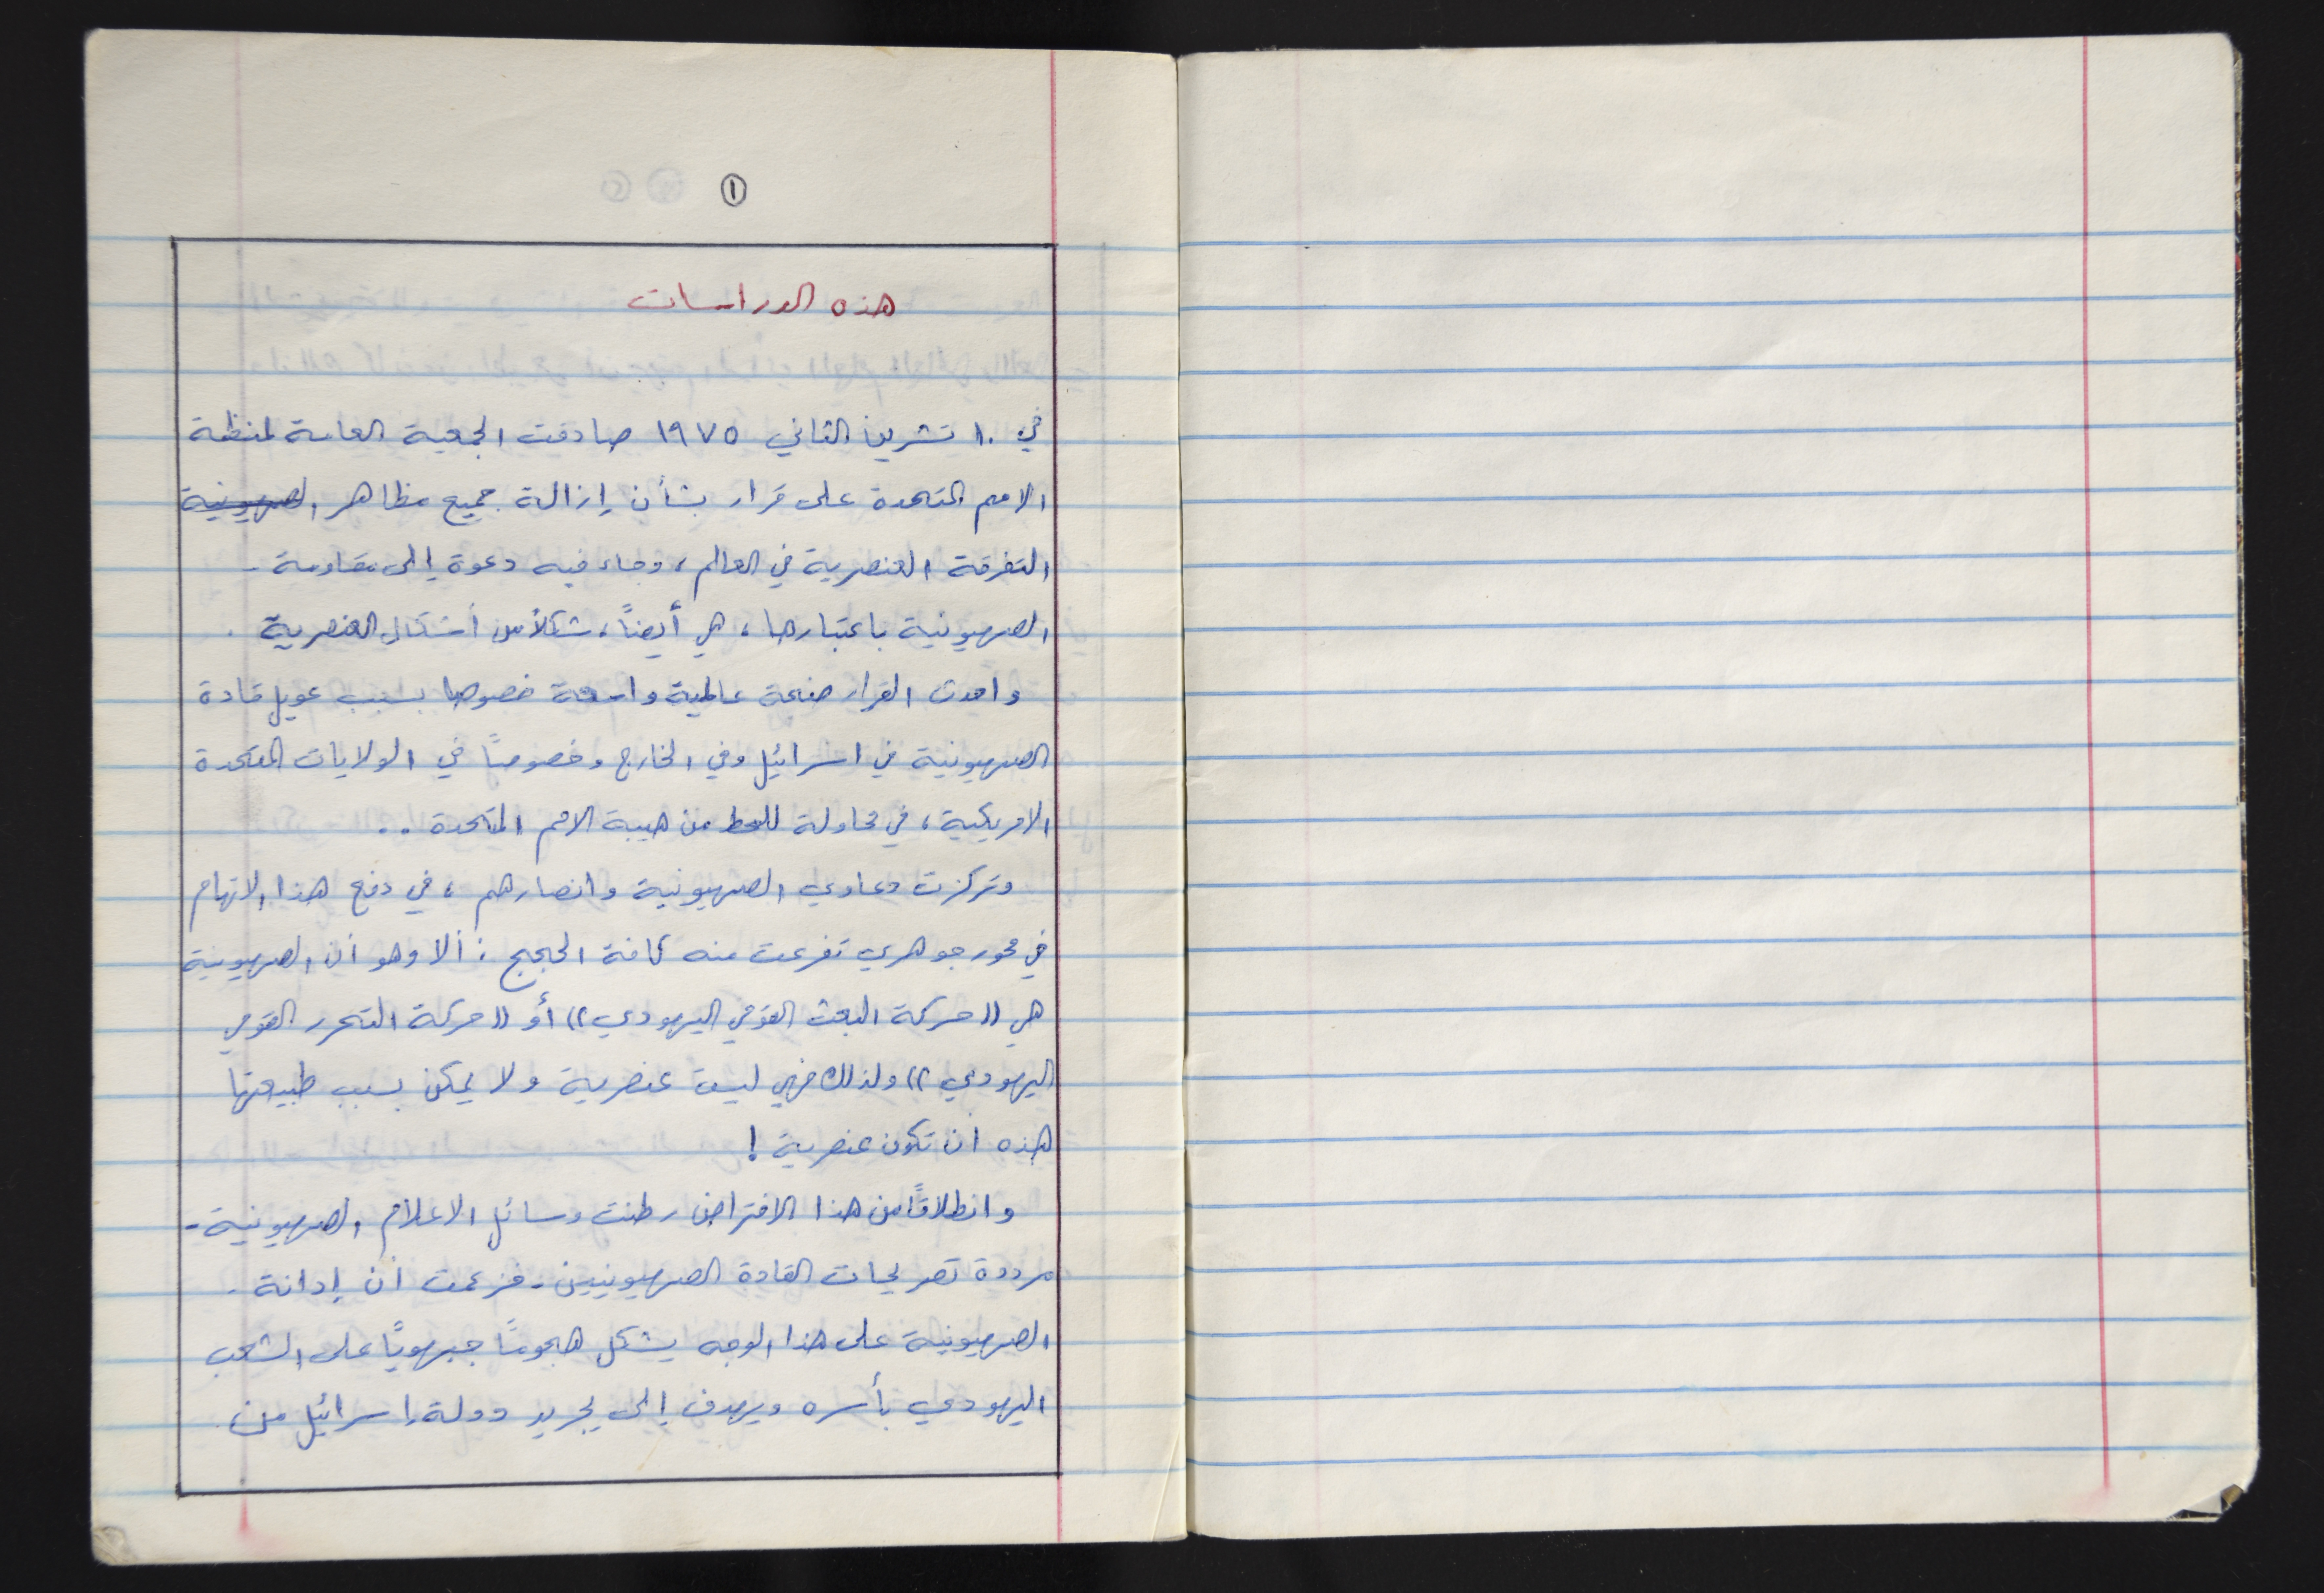 ١
هذه الدراسات
في ١٠ تشرين الثاني ١٩٧٥ صادقت الجمعية العامة لمنظمة
الامم المتحدة على قرار بشأن إزالة جميع مظاهر الصهيونية
التفرقة العنصرية في العالم، وجاء فيه دعوة إلى مقاومة -
الصهيونية باعتبارها، هي أيضاً، شكلاً من أشكال العنصرية .
واحدث القرار ضجة عالمية واسعة خصوصا بسبب عويل قادة
الصهيونية في اسرائيل وفي الخارج وخصوصاً في الولايات المتحدة
الامريكية، في محاولة للحط من هيبة الامم المتحدة ..
وتركزت دعاوي الصهيونية وانصارهم، في دفع هذا الاتهام
في محور جوهري تفرعت منه كافة الحجج : ألا وهو أن الصهيونية
هي ((حركة البعث القومي اليهودي)) أو ((حركة التحرر القومي
اليهودي)) ولذلك فهي ليست عنصرية ولا يمكن بسبب طبيعتها
هذه ان تكون عنصرية !
وانطلاقاً من هذا الافتراض رطنت وسائل الاعلام الصهيونية -
مرددة تصريحات القادة الصهيونيين - فزعمت أن إدانة .
الصهيونية على هذا الوجه يشكل هجوماً جبهوياً على الشعب
اليهودي بأسره ويهدف إلى تجريد دولة إسرائيل من .